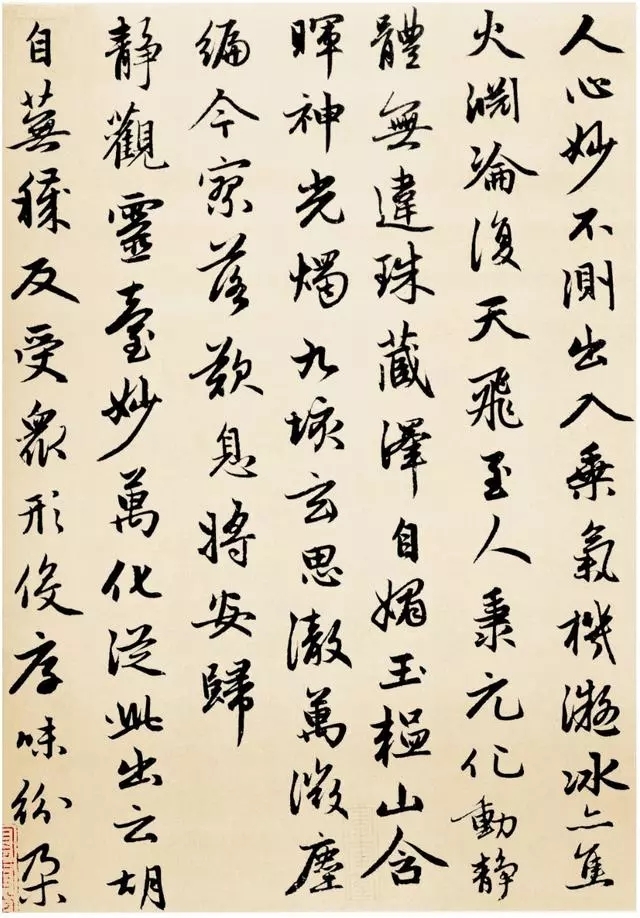 人心妙不測出入乘氣機凝冰亦焦
火淵淪復天飛至人秉元化動靜
體無違珠藏澤自媚玉韞山含
暉神光燭九垓玄思澈萬微塵
編今寥落歎息將安歸
靜觀靈臺妙萬化從此出云胡
自蕪穢反受眾形役厚味紛朶